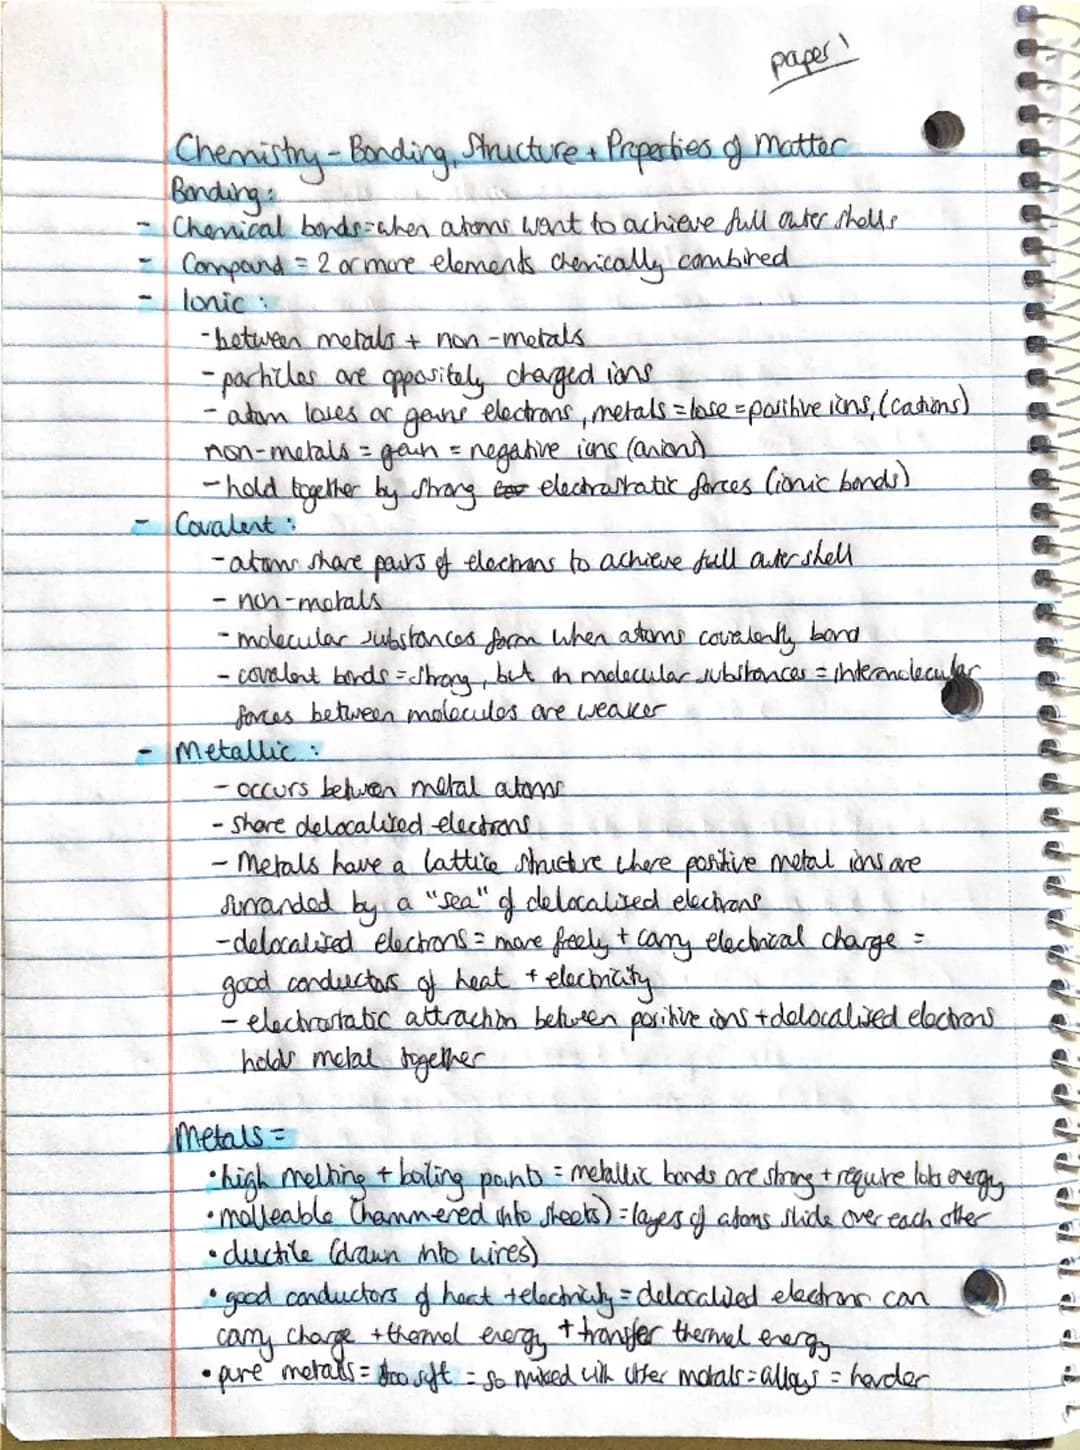 paper 1
Chemistry - Bonding, Structure + Properties of Matter
Bonding:
- Chemical bonds = when atoms want to achieve full outer shells
- Compound = 2 or more elements chemically combined
- Ionic :
- between metals + non-metals
- particles are oppositely charged ions
- atom loses or gains electrons, metals = lose = positive ions, (cations)
non-metals = gain = negative ions (anions)
- hold together by strong electrostatic forces (ionic bonds)
- Covalent :
- atoms share pairs of electrons to achieve full outer shell
- non-metals
- molecular substances form when atoms covalently bond
- covalent bonds = strong, but in molecular substances = intermolecular
forces between molecules are weaker
- Metallic :
- occurs between metal atoms
- share delocalised electrons
- Metals have a lattice structure where positive metal ions are
surrounded by a "sea" of delocalised electrons
- delocalised electrons = move freely + carry electrical charge =
good conductors of heat + electricity
- electrostatic attraction between positive ions + delocalised electrons
holds metal together
Metals =
• high melting + boiling points = metallic bonds are strong + require lots energy
• malleable (hammered into sheets) = layers of atoms slide over each other
• ductile (drawn into wires)
• good conductors of heat + electricity = delocalised electrons can
carry charge + thermal energy + transfer thermal energy
• pure metals = too soft = so mixed with other metals = alloys = harder